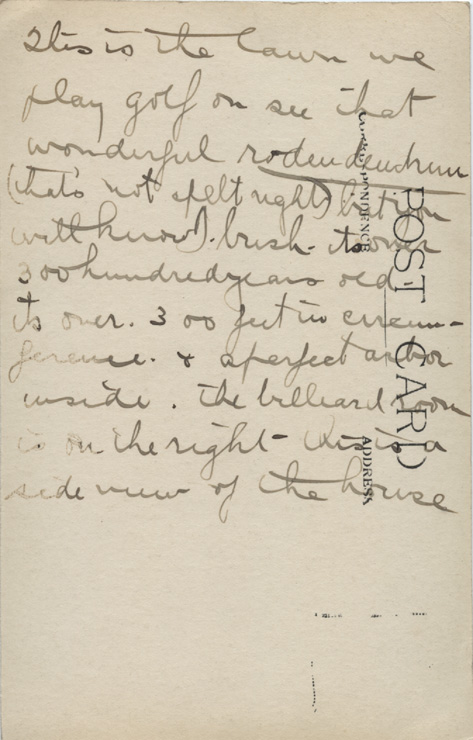 This is the lawn we
play golf on see that
wonderful rodendendrum
(that's not spelt right) but you
will know). bush - its over
300 hundred years old -
its over. 300 feet in circum-
ference. & a perfect arbor
inside. The billiard room
is on the right - this is a
side view of the house
POST CARD
CORRESPONDENCE
ADDRESS